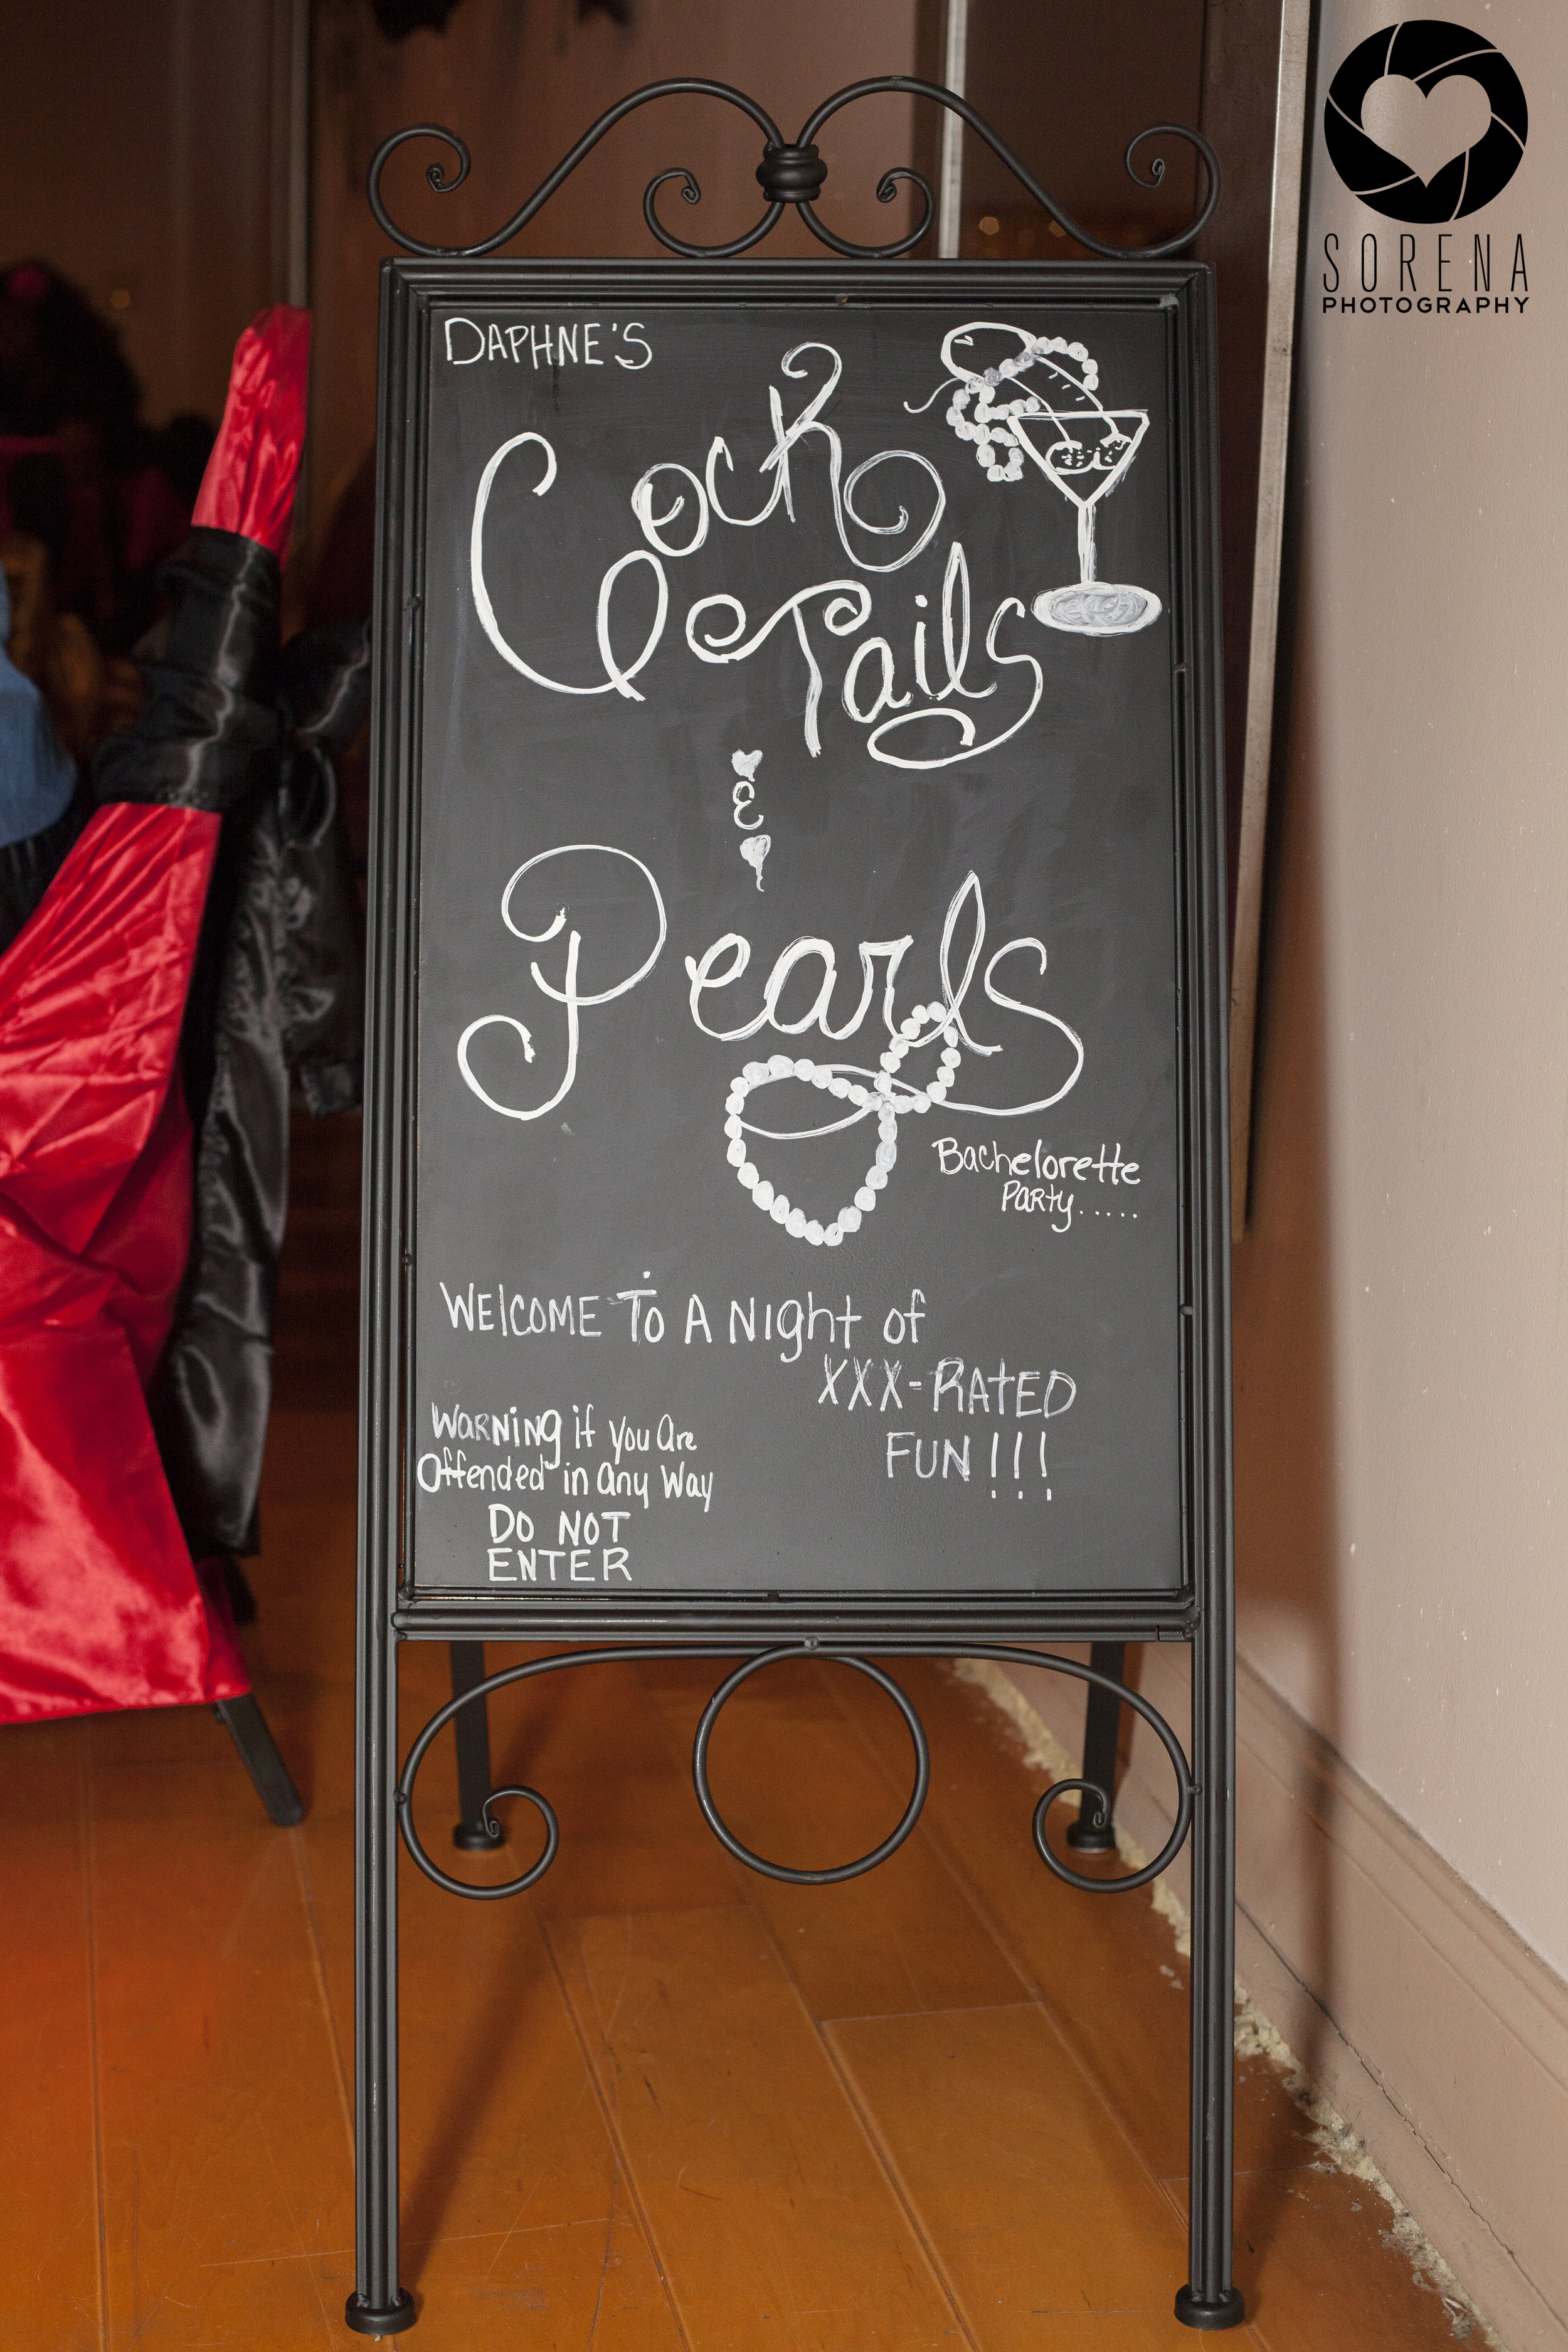 DAPHNE'S
Cock
Tails
&
Pearls
Bachelorette
Party.....
WELCOME TO A Night of
XXX-RATED
FUN!!!
WARNiNg if you Are
Offended in Any Way
DO NOT
ENTER
SORENA
PHOTOGRAPHY